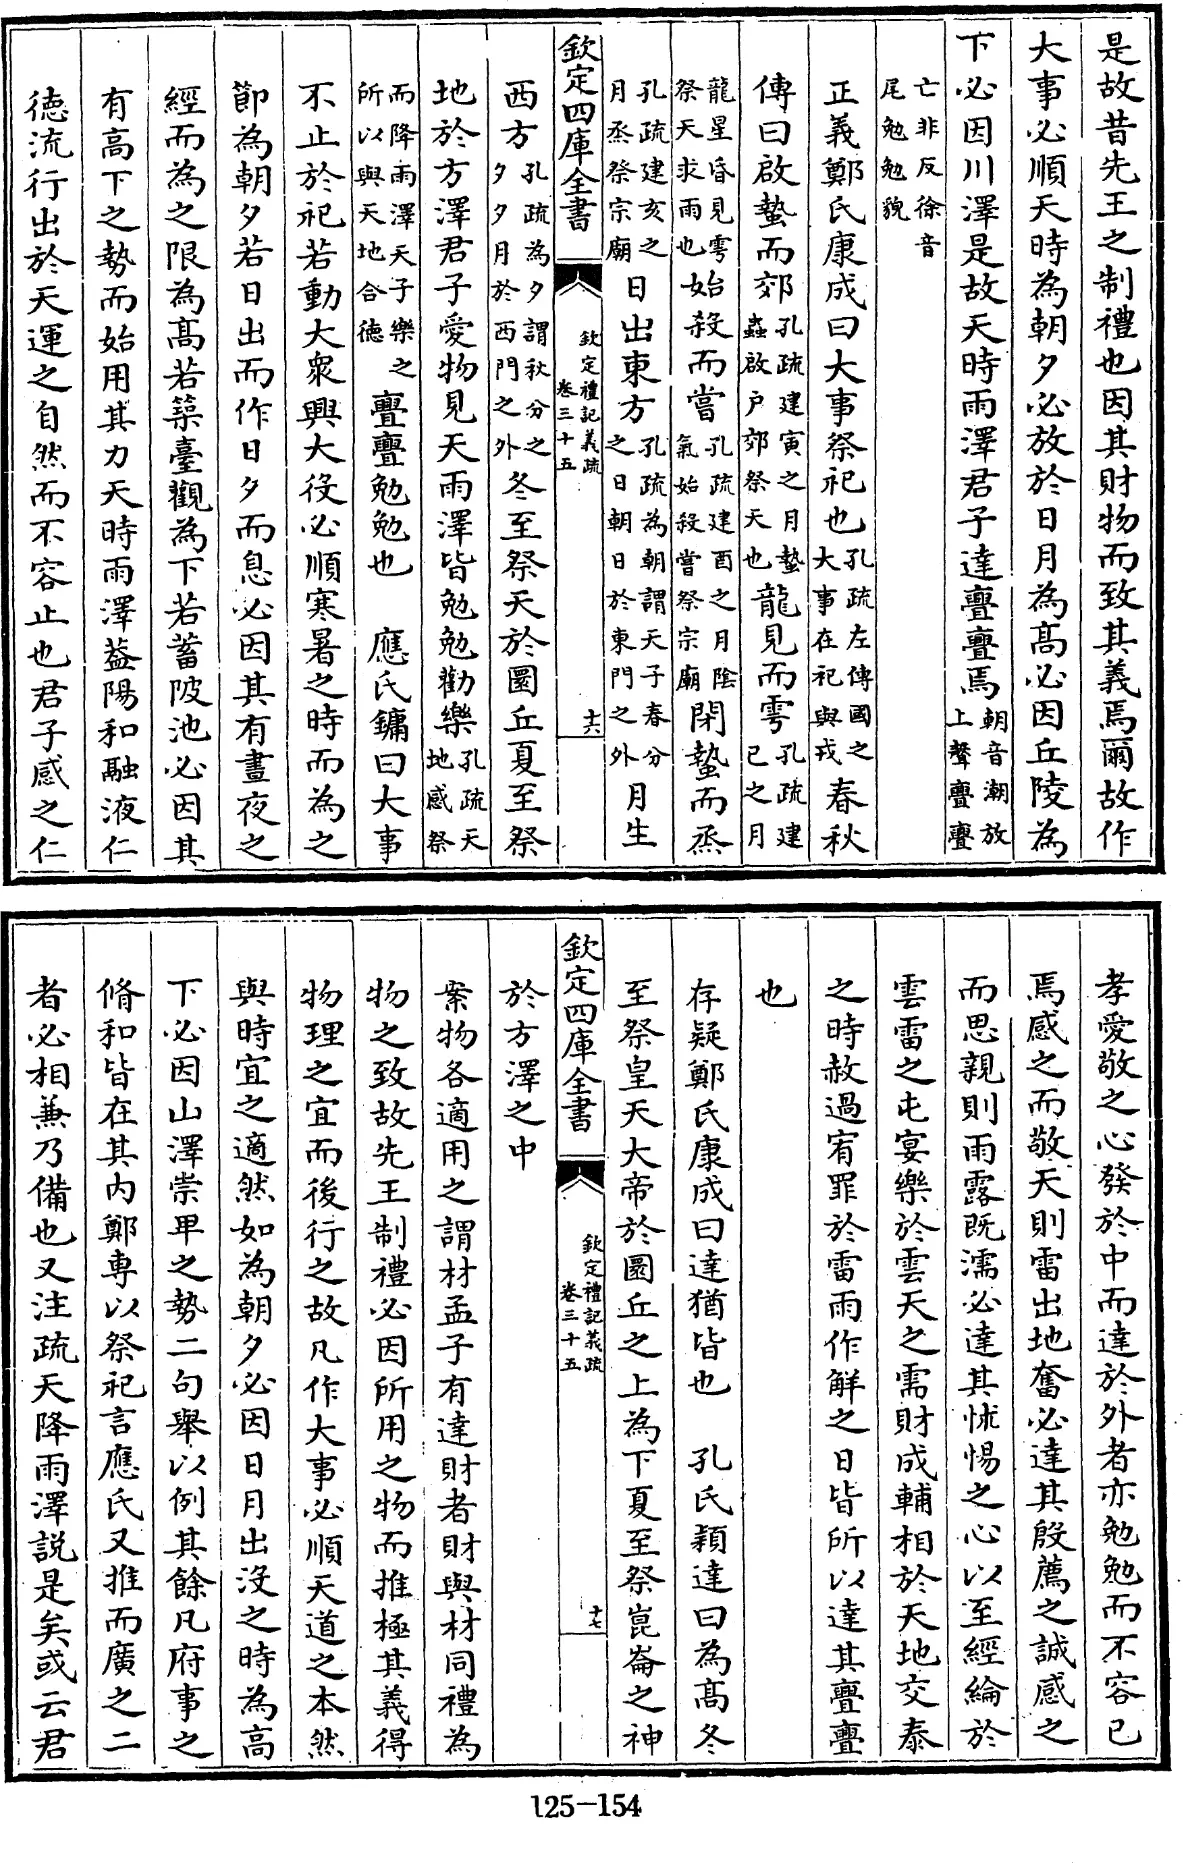 是故昔先王之制禮也因其財物而致其義焉爾故作
大事必順天時為朝夕必放於日月為髙必因丘陵為
下必因川澤是故天時雨澤君子達亹亹焉朝音潮放上聲亹亹
亡非反徐音尾勉勉貌
正義鄭氏康成曰大事祭祀也孔疏左傳國之大事在祀與戎春秋
傳曰啟蟄而郊孔疏建寅之月蟄蟲啟户郊祭天也龍見而雩孔疏建巳之月
龍星昏見雩祭天求雨也始殺而嘗孔疏建酉之月陰氣始殺嘗祭宗廟閉蟄而烝
孔疏建亥之月烝祭宗廟日出東方孔疏為朝謂天子春分之日朝日於東門之外月生
欽定四庫全書
欽定禮記義疏
卷三十五
十六
西方孔疏為夕謂秋分之夕夕月於西門之外冬至祭天於圜丘夏至祭
地於方澤君子愛物見天雨澤皆勉勉勸樂孔疏天地感祭
而降雨澤天子樂之所以與天地合德亹亹勉勉也　應氏鏞曰大事
不止於祀若動大衆興大役必順寒暑之時而為之
節為朝夕若日出而作日夕而息必因其有晝夜之
經而為之限為髙若築臺觀為下若蓄陂池必因其
有高下之勢而始用其力天時雨澤葢陽和融液仁
德流行出於天運之自然而不容止也君子感之仁
孝愛敬之心發於中而達於外者亦勉勉而不容已
焉感之而敬天則雷出地奮必達其殷薦之誠感之
而思親則雨露既濡必達其怵惕之心以至經綸於
雲雷之屯宴樂於雲天之需財成輔相於天地交泰
之時赦過宥罪於雷雨作解之日皆所以達其亹亹
也
存疑鄭氏康成曰達猶皆也　孔氏穎達曰為髙冬
至祭皇天大帝於圜丘之上為下夏至祭崑崙之神
欽定四庫全書
欽定禮記義疏
卷三十五
十七
於方澤之中
案物各適用之謂材孟子有達財者財與材同禮為
物之致故先王制禮必因所用之物而推極其義得
物理之宜而後行之故凡作大事必順天道之本然
與時宜之適然如為朝夕必因日月出沒之時為高
下必因山澤崇卑之勢二句舉以例其餘凡府事之
脩和皆在其内鄭専以祭祀言應氏又推而廣之二
者必相兼乃備也又注疏天降雨澤説是矣或云君
125-154